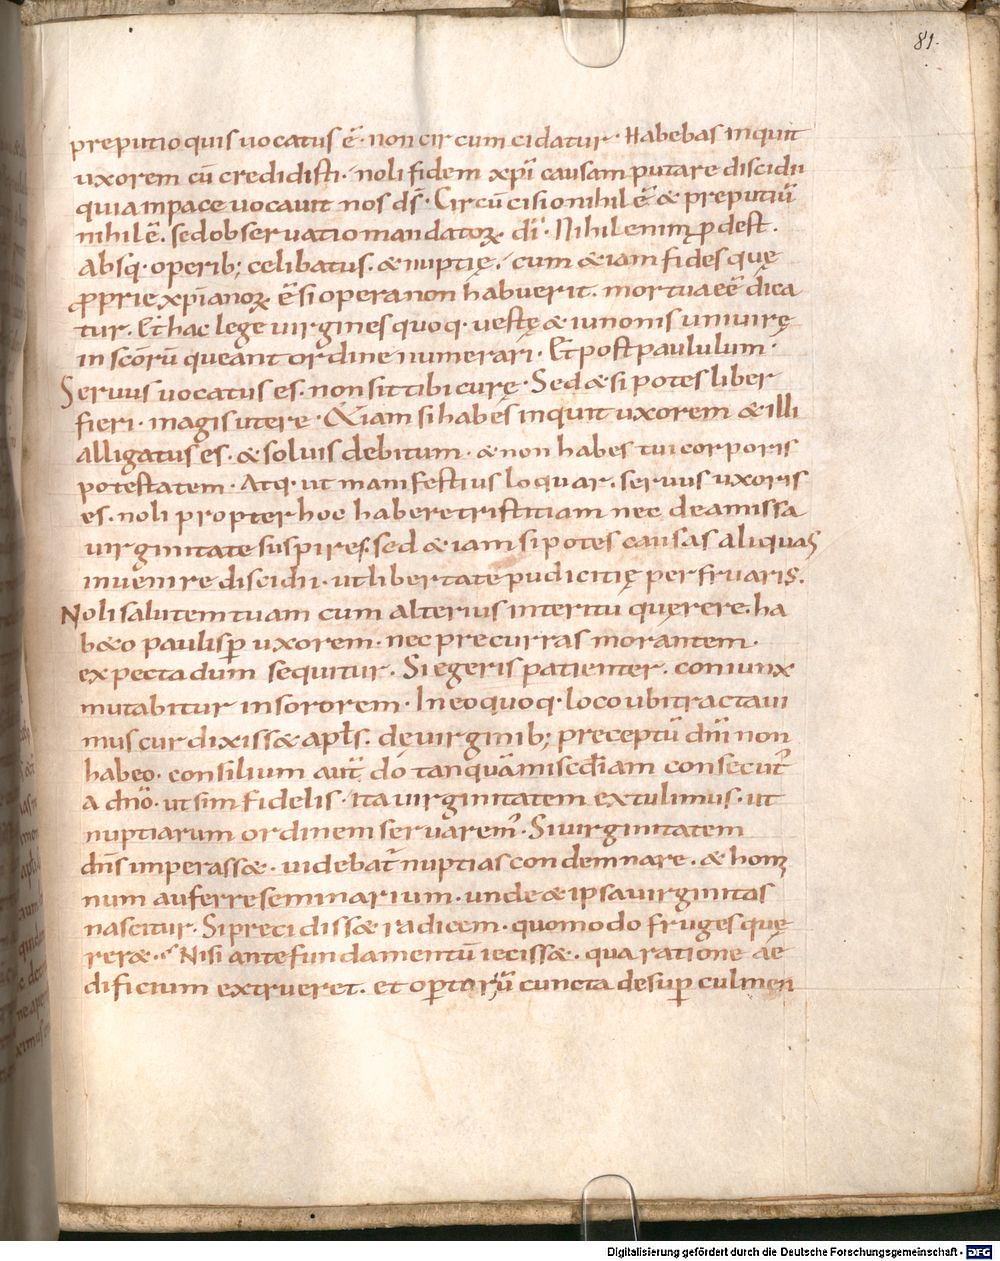 81.
preputio quis uocatus ē· non circumcidatur· Habebas inquit
uxorem cū credidisti· noli fidem xp̄i causam putare discidii
quia in pace uocauit nos d̄s· Circūcisio nihil ē & preputiū
nihil ē. sed obseruatio mandatoꝝ. dī· Nihil enim ꝓdest.
Absq· operib; celibatus. & nuptię. cum & iam fides quę
ꝓprie xp̄ianoꝝ ē si opera non habuerit. mortua eē dica
tur. Et hac lege uirgines quoq· uestę & iunonis uniuirę
in scōrū queant ordine numerari· Et post paululum·
Seruus uocatus es· non sit tibi curę· Sed & si potes liber
fieri· magis utere· & iam si habes inquit uxorem & illi
alligatus es. & soluis debitum· & non habes tui corporis
potestatem· Atq· ut manifestius loquar. seruus uxoris
es. noli propter hoc habere tristitiam nec de amissa
uirginitate suspires. sed & iam si potes causas aliquas
inuenire discidii· ut libertate pudicitię perfruaris.
Noli salutem tuam cum alterius interitu quęrere. ha
b&o paulisꝑ uxorem· nec precurras morantem·
expecta dum sequitur. Si egeris patienter. coniunx
mutabitur in sororem· In eo quoq· loco ubi tractaui
mus cur dixiss& apl̄s. dę uirginib; preceptū dn̄i non
habeo· consilium aut̄ do tanquā misc̄diam consecut̄
a dn̄o· ut sim fidelis· ita uirginitatem extulimus· ut
nuptiarum ordinem seruarem̄· Si uirginitatem
dn̄s imperass&· uidebat̄ nuptias condemnare. & homi
num auferre seminarium. unde & ipsa uirginitas
nascitur· Si precidiss& radicem· quomodo fruges quę
rer&· Nisi ante fundamentū iecissæ. qua ratione aę
dificium extrueret. et opertorū cuncta desuꝑ culmen
Digitalisierung gefördert durch die Deutsche Forschungsgemeinschaft · DFG